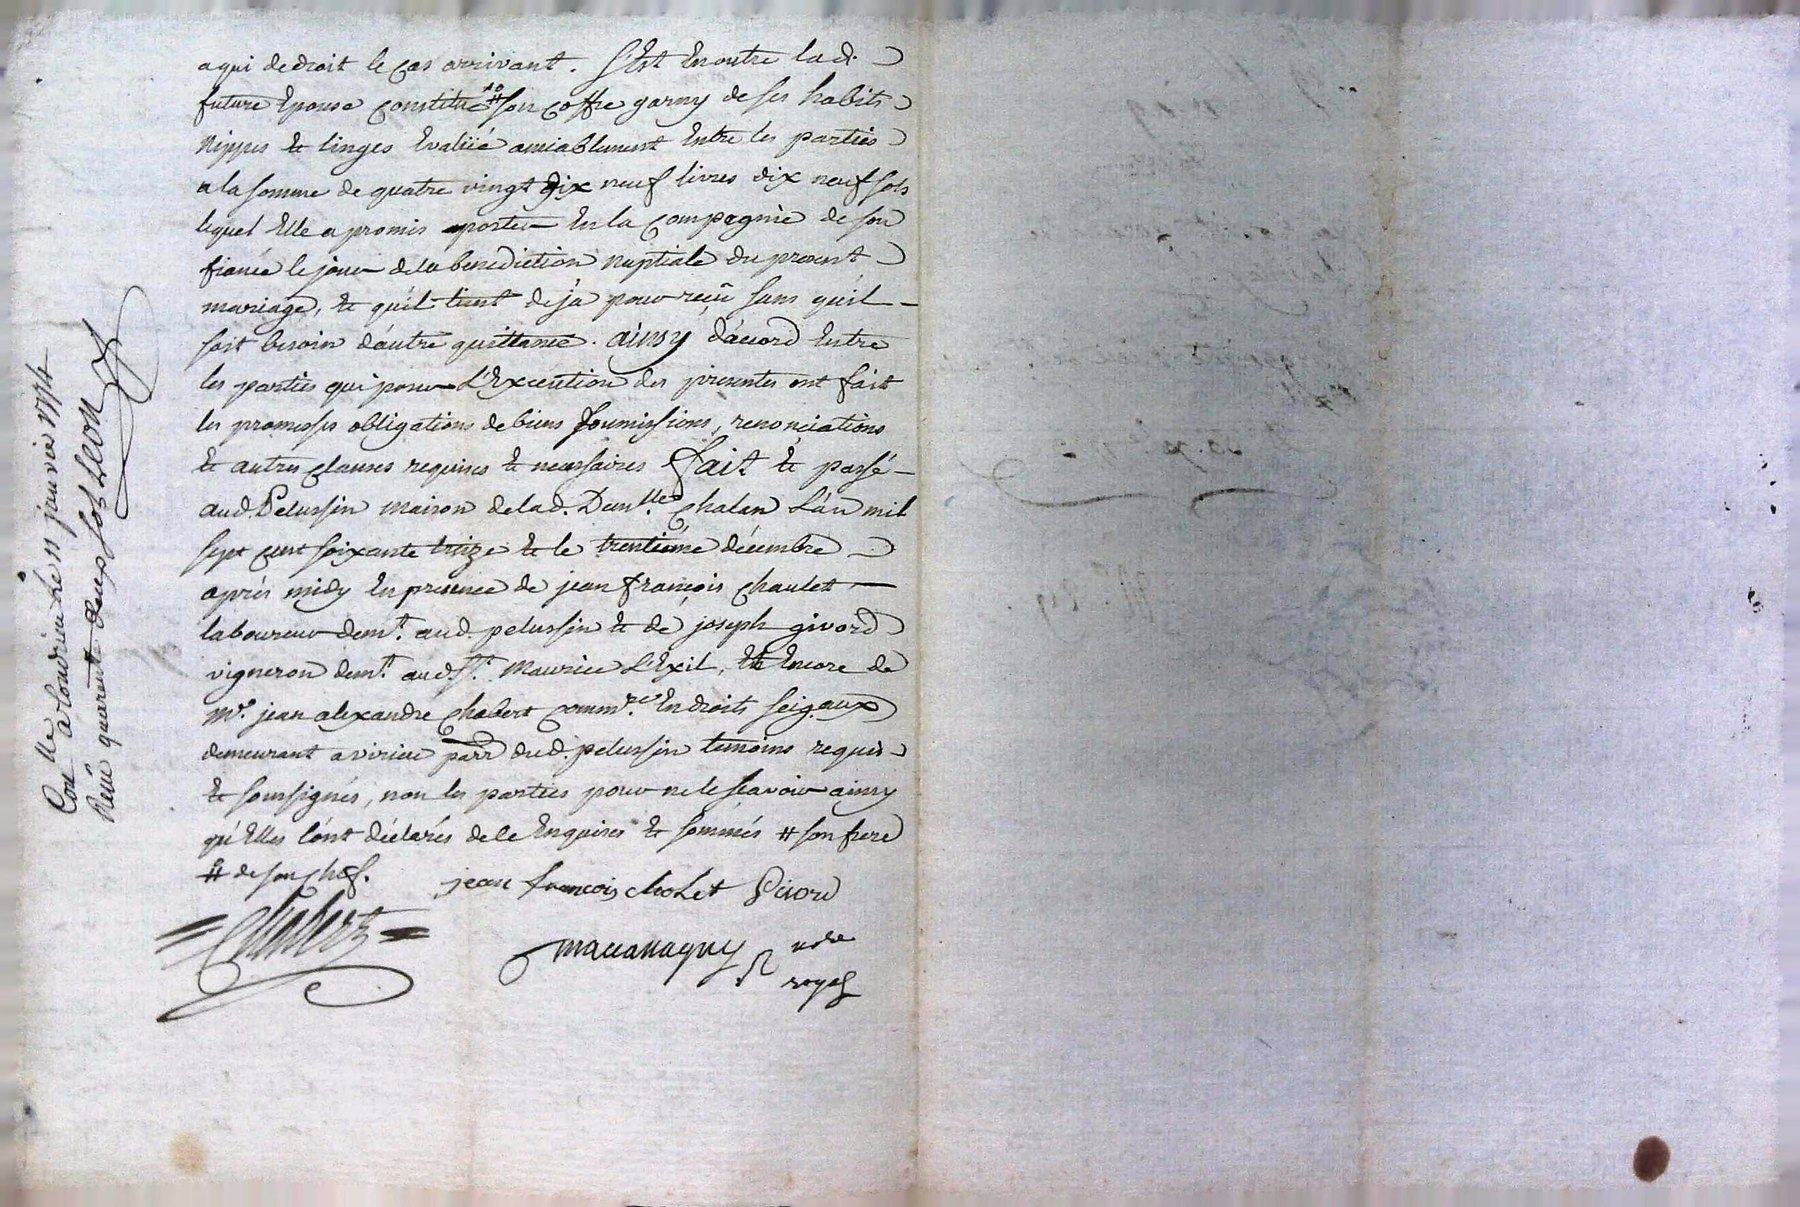 a qui de droit le cas arrivant. S'est En outre lad.
future Epouse constitué # son coffre garny de ses habits
Nippes & linges Evalüé amiablement Entre les parties
a la somme de quatre vingt dix neuf livres dix neuf sols
lequel Elle a promis aporter En la compagnie de son
fiancé le jour de la benediction nuptiale du present
mariage, & qu'il tient déja pour reçû sans quil
soit besoin d'autre quittance. ainsy d'accord Entre
les parties qui pour L'Execution des presentes ont fait
les promesses obligations de biens soumissions, renonciations
& autres clauses requises & necessaires fait & passé
aud. Pelussin maison de lad. Dam.lle Chalan L'an mil
sept cent soixante treize & le trentieme décembre
aprés midy En presence de jean françois Chaulet
laboureur dem.t aud. pelussin & de joseph givord
vigneron dem.t aud. S.t Maurice L'Exil, & Encore de
M.e jean alexandre Chabert comm.re En droits seig.aux
demeurant a virieu parr dud. pelussin temoins requis
& soussignés, non les parties pour ne le scavoir ainsy
qu'Elles l'ont déclarés de ce Enquises & sommés # son frere
# de son chef.
jean francois cholet Givord
Chabert
N.re
royal
Con.lle a Condrieu le 11 janvier 1774
Reçu quarante deux sols